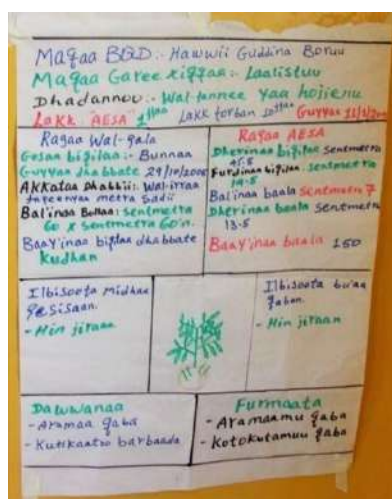 Maqaa BQD:- Hawwii Guddina Boruu
Maqaa Garee xiqqaa:- Laalistuu
Dhadannoo:- Wal-tannee yaa hojiennu
Lakk AESA 2ffaa Lakk torban 10ffaa Guyyaa
Ragaa Wal-gala
Gosan biqilaa:- Bunnaa
Guyyaa dhabbate 29/10/200
Akkataa dhabbii:- Wal-irraa
fageenyaa meetra Sadii
Bal'inaa Bollaa: sentmetra
60 x Sentmetra 60'n.
Baay'inaa biqilaa dhabbate
Kudhan
Ragaa AESA
Dheerinaa biqilaa sentmetra
45.5
Furdinaa biqilaa: sentmetra
14.5
Bal'inaa baala sentmetra 7
Dherinaa baala sentmetra
13.5
Baay'inaa baala 150
Ilbisoota midhaa
qaqisisaan.
- Hin jiraan
Ilbisoota bu'aa
qaban.
- Hin jiraan
Dawwanaa
- Aramaa qaba
- Kutkaatoo barbaada
Furmaata
- Aramaamu qaba
- Kotokutamuu qaba